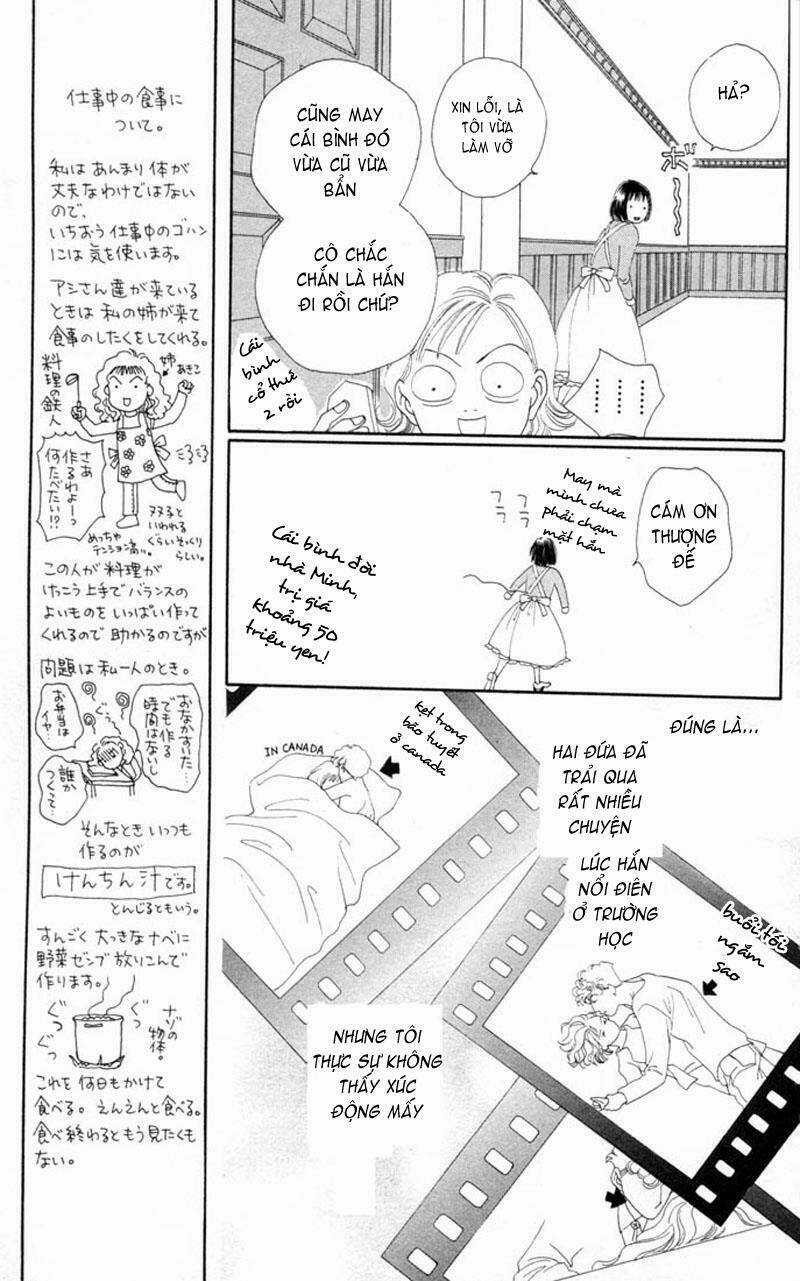 仕事中の食事に
ついて。
私は あんまり 体が
丈夫なわけではない
ので、
いちおう 仕事中のゴハン
には 気を使います。
アシさん達が来ている
ときは 私の姉が来て
食事のしたくをしてくれる。
料理の鉄人
姉
あきこ
さあ
作るわよーっ
何たべたい!?
めっちゃ
テンション高い。
双子と
いわれる
ぐらい そっくり
らしい。
この人が 料理が
けっこう上手で バランスの
よいものを いっぱい作って
くれるので 助かるのですが
問題は 私一人のとき。
おなかすいた…
でも作る
時間はないし
お弁当は
イヤ…
ぐぅ
誰か
つくって…
そんなとき いつも
作るのが
けんちん汁です。
とんじるともいう。
すんごく 大っきなナベに
野菜ゼンブ 放りこんで
作ります。
ぐつ
ぐつ
ナゾの
物体。
これを 何日もかけて
食べる。えんえんと食べる。
食べ終わると もう見たくも
ない。
HẢ?
XIN LỖI, LÀ
TÔI VỪA
LÀM VỠ
CŨNG MAY
CÁI BÌNH ĐÓ
VỪA CŨ VỪA
BẨN
CÔ CHẮC
CHẮN LÀ HẮN
ĐI RỒI CHỨ?
ボ〜
Cái
bình
cổ thứ
2 rồi
CÁM ƠN
THƯỢNG
ĐẾ
May mà
mình chưa
phải chạm
mặt hắn
フラ
フラ
Cái bình đời
nhà Minh,
trị giá
khoảng 50
triệu yen!
ĐÚNG LÀ...
HAI ĐỨA ĐÃ
TRẢI QUA
RẤT NHIỀU
CHUYỆN
kẹt trong
bão tuyết
ở canada
IN CANADA
LÚC HẮN
NỔI ĐIÊN
Ở TRƯỜNG
HỌC
buổi tối
ngắm
sao
NHƯNG TÔI
THỰC SỰ KHÔNG
THẤY XÚC
ĐỘNG MẤY